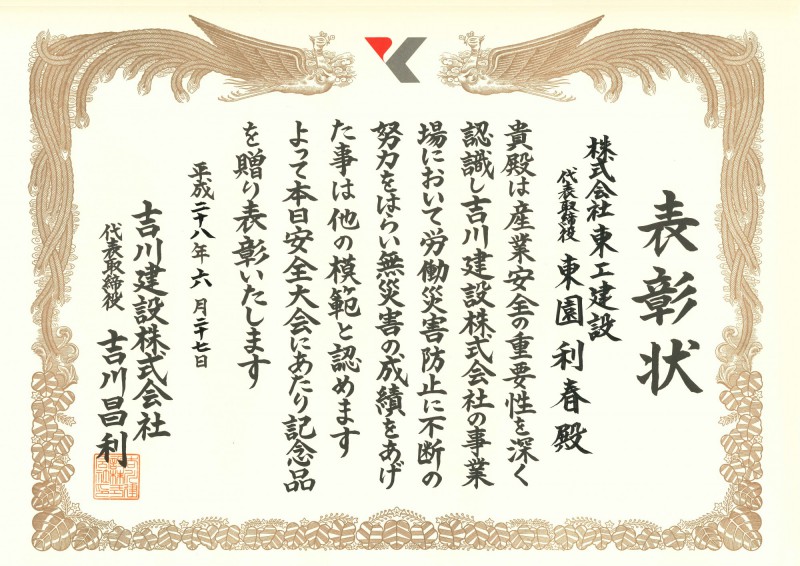 表彰状
株式会社東工建設
代表取締役 東園利春殿
貴殿は産業安全の重要性を深く
認識し吉川建設株式会社の事業
場において労働災害防止に不断の
努力をはらい無災害の成績をあげ
た事は他の模範と認めます
よって本日安全大会にあたり記念品
を贈り表彰いたします
平成二十八年六月二十七日
吉川建設株式会社
代表取締役 吉川昌利